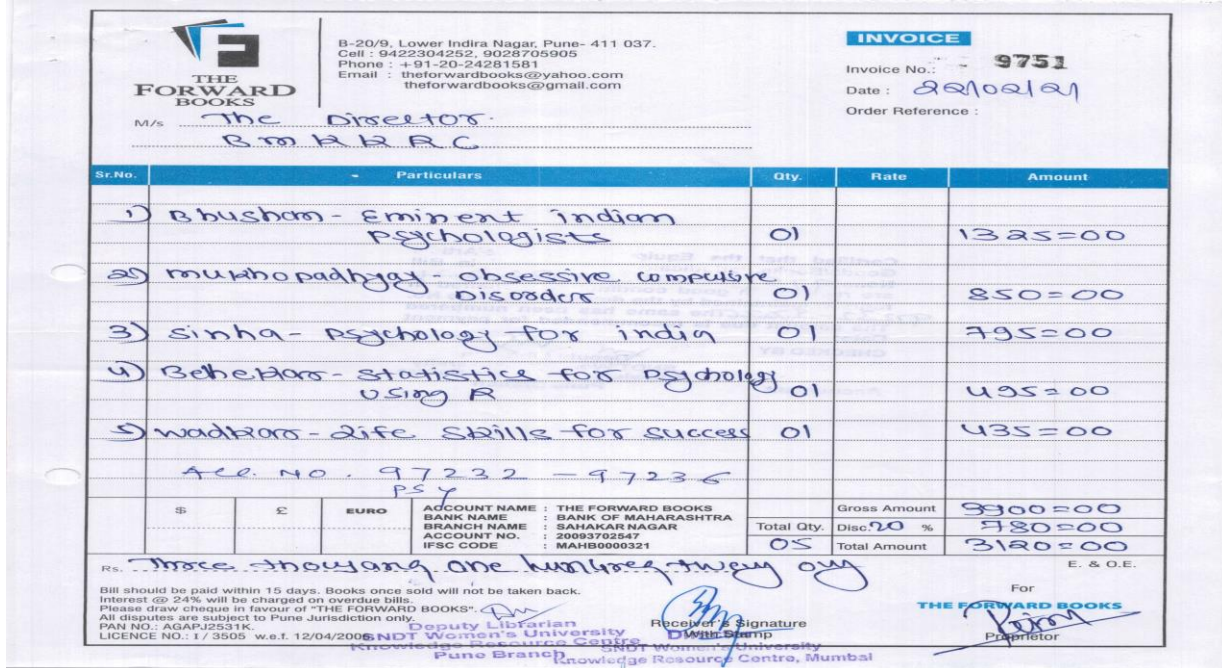 THE
FORWARD
BOOKS
B-20/9, Lower Indira Nagar, Pune- 411 037.
Cell : 9422304252, 9028705905
Phone : +91-20-24281581
Email : theforwardbooks@yahoo.com
theforwardbooks@gmail.com
INVOICE
Invoice No.: - 9751
Date : 22/02/21
Order Reference :
M/s The Director.
BMKKRC
Sr.No. Particulars Qty. Rate Amount
1) Bhushan - Eminent indian
Psychologists 01 1325=00
2) mukhopadhyay obsessive compulsive
Disorder 01 850=00
3) Sinha - Psychology for india 01 795=00
4) Belhekar - Statistics for Psychology
Using R 01 495=00
5) Wadkar - Life Skills for Success 01 435=00
Acc. No. 97232 - 97236
PSY
$ £ EURO
ACCOUNT NAME : THE FORWARD BOOKS
BANK NAME : BANK OF MAHARASHTRA
BRANCH NAME : SAHAKAR NAGAR
ACCOUNT NO. : 20093702547
IFSC CODE : MAHB0000321
Gross Amount 3900=00
Total Qty. Disc. 20 % 780=00
05 Total Amount 3120=00
Rs. Three thousand one hundred twenty only
E. & O.E.
Bill should be paid within 15 days. Books once sold will not be taken back.
Interest @ 24% will be charged on overdue bills.
Please draw cheque in favour of "THE FORWARD BOOKS".
All disputes are subject to Pune Jurisdiction only.
PAN NO.: AGAPJ2531K.
LICENCE NO.: I / 3505 w.e.f. 12/04/2006.
Deputy Librarian
SNDT Women's University
Knowledge Resource Centre
Pune Branch
Receiver's Signature
With Stamp
SNDT Women's University
Knowledge Resource Centre, Mumbai
For
THE FORWARD BOOKS
Proprietor